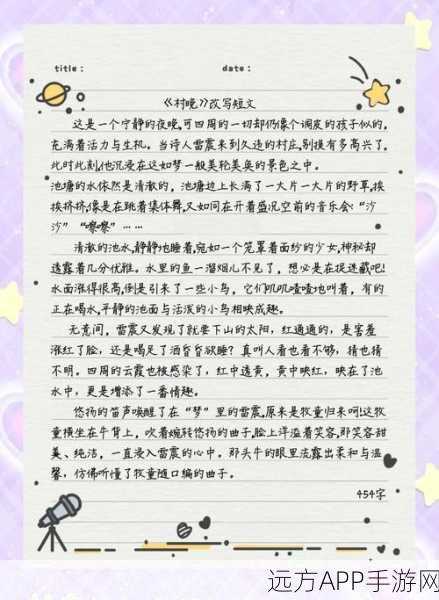 title：
date：
《村晚》改写短文
这是一个宁静的夜晚,可四周的一切却仍像个调皮的孩子似的,
充满着活力与生机。当诗人雷震来到久违的村庄,别提有多高兴了.
此时此刻,他沉浸在这如梦一般美轮美奂的景色之中.
池塘的水依然是清澈的,池塘边上长满了一大片一大片的野草,挨
挨挤挤,像是在跳着集体舞,又如同在开着盛况空前的音乐会:“沙
沙”“嚓嚓”……
清澈的池水,静静地睡着,宛如一个笼罩着面纱的少女,神秘却
透露着几分优雅。水里的鱼一溜烟儿不见了,想必是在捉迷藏吧!
水面涨得很高,倒是引来了一些小鸟,它们叽叽喳喳地叫着,有的
正在喝水,平静的池面与活泼的小鸟相映成趣。
无意间,雷震又发现了就要下山的太阳,红通通的,是害羞
涨红了脸,还是喝足了酒昏昏欲睡?真叫人看也看不够,猜也猜
不明。四周的云霞也被感染了,红中透黄,黄中映红,映在了池
水中,更是增添了一番情趣。
悠扬的笛声唤醒了在“梦”里的雷震,原来是牧童归来呵!这牧
童横坐在牛背上,吹着婉转悠扬的曲子,脸上洋溢着笑容,那笑容甜
美、纯洁,一直浸入雷震的心中。那头牛的眼里流露出柔和与温
馨,仿佛听懂了牧童随口编的曲子。
454字
远方APP手游网